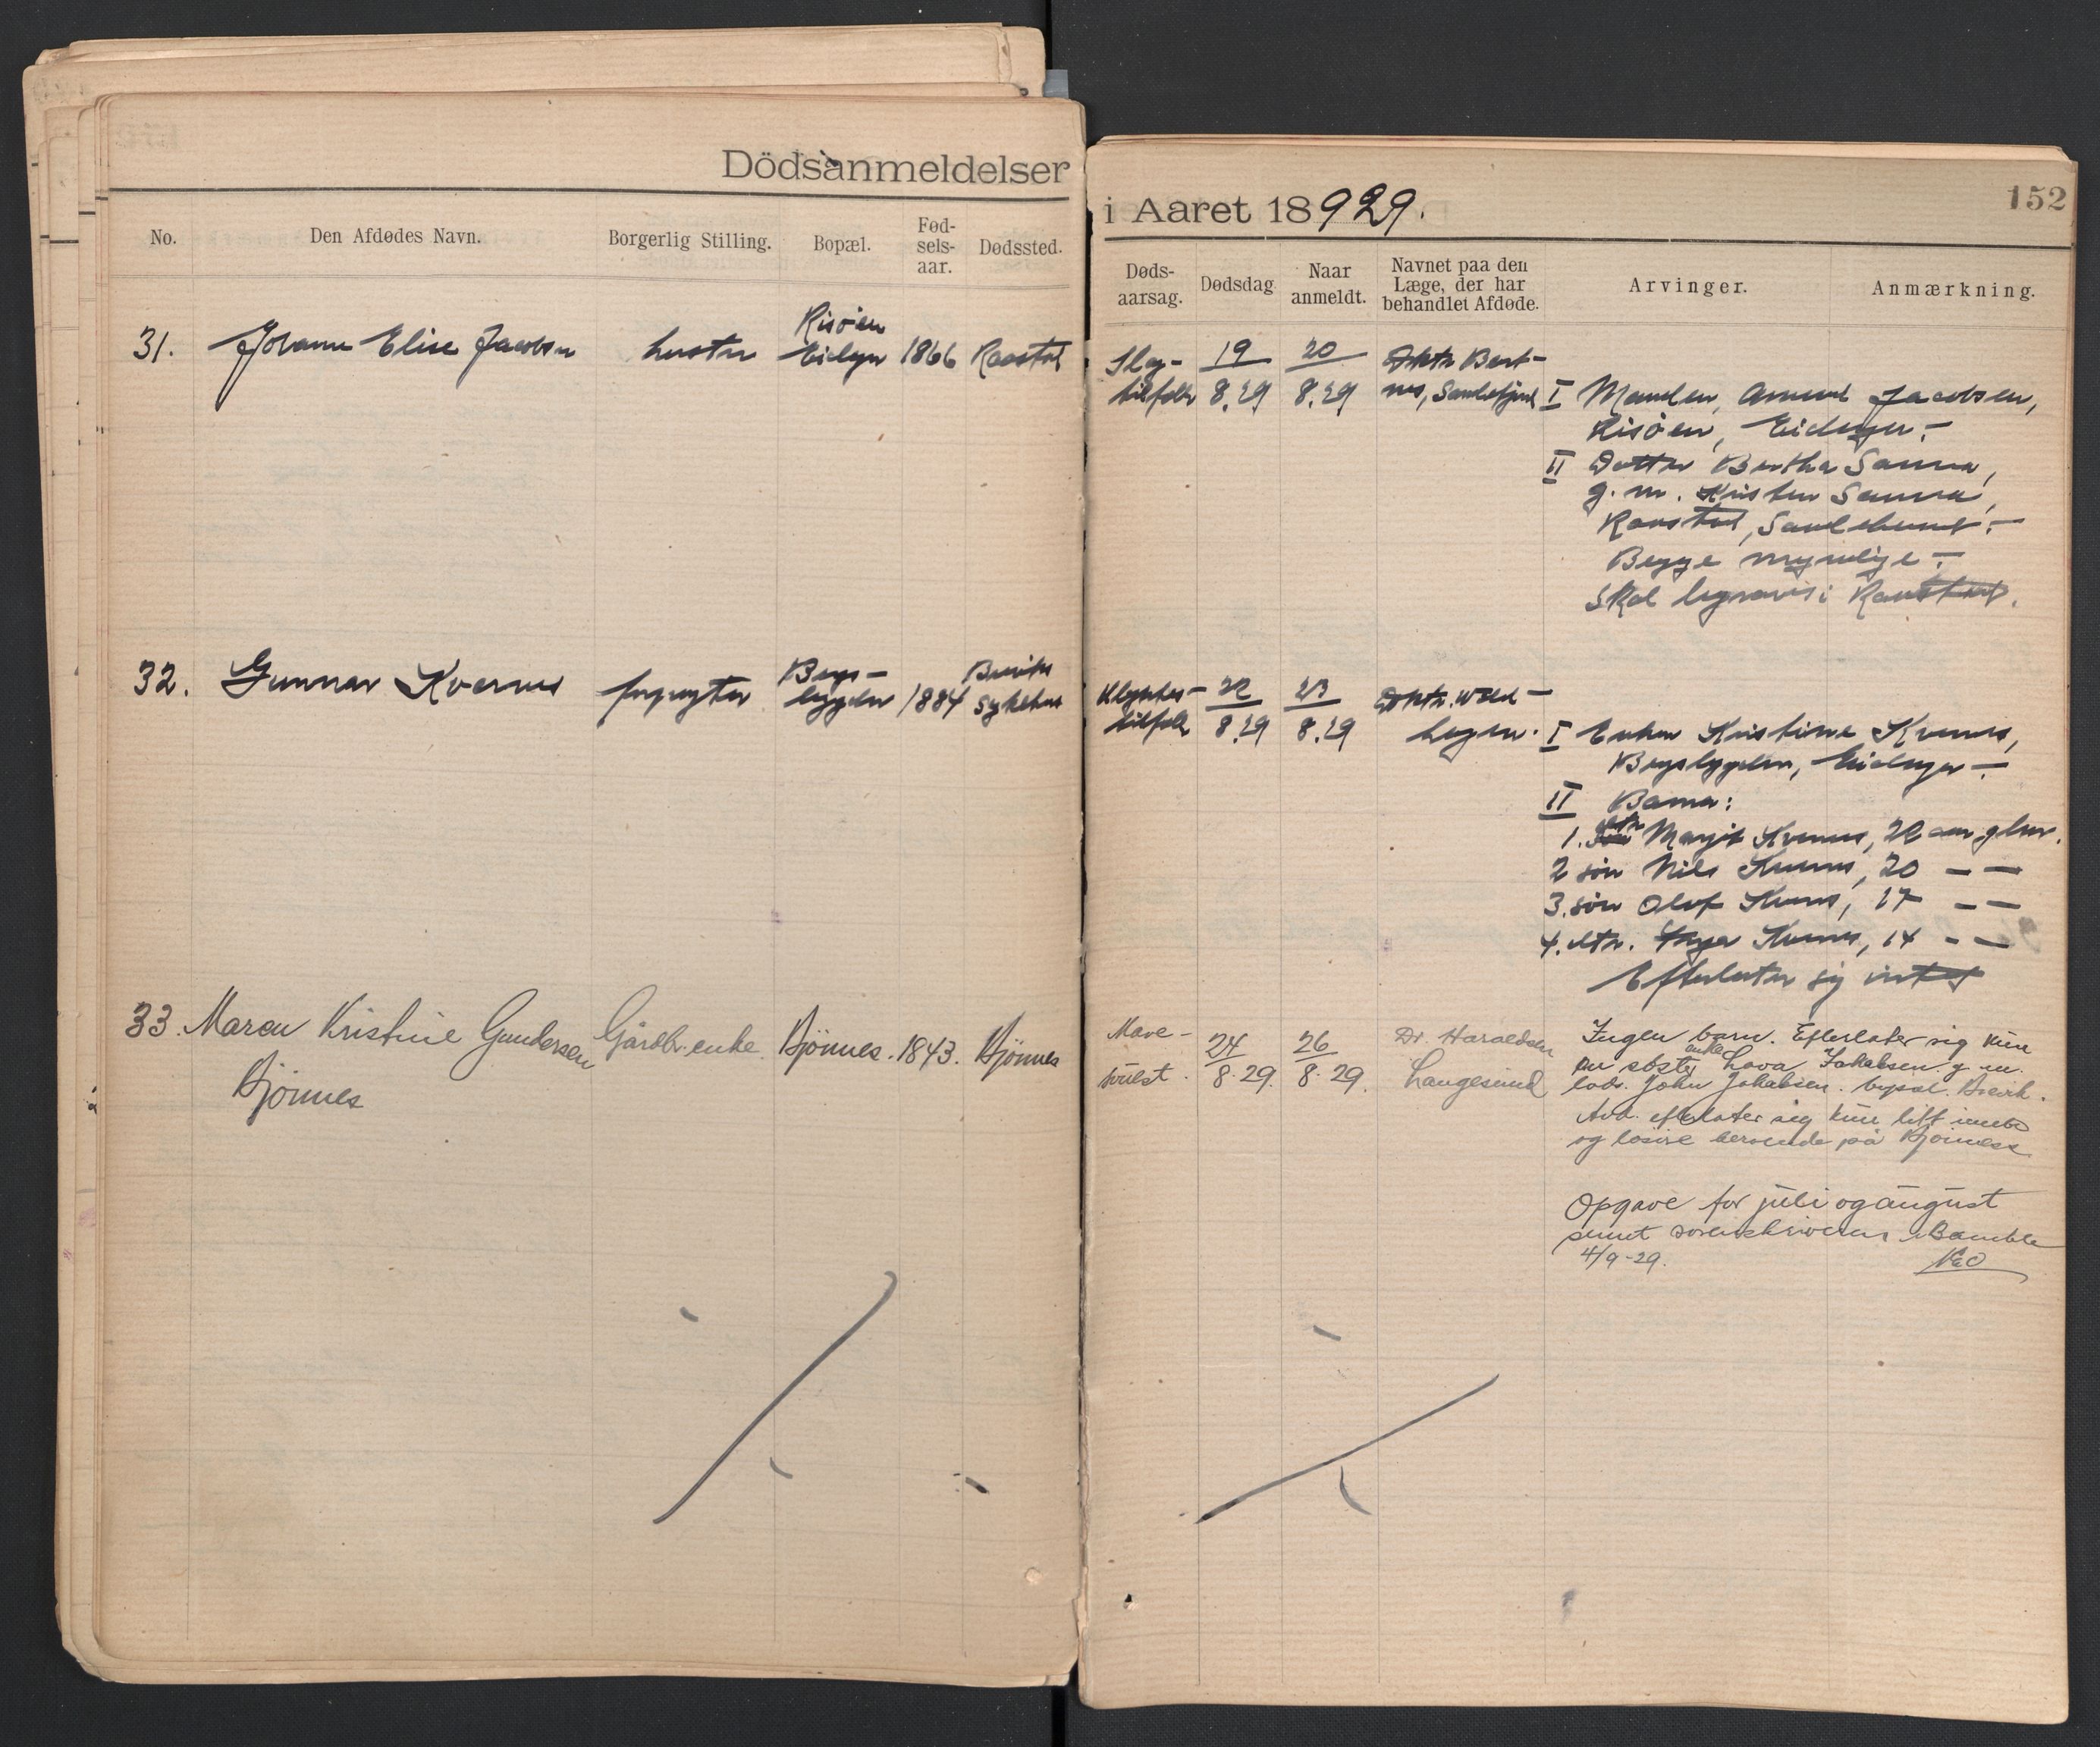 Dödsanmeldelser
i Aaret 18929.
152
No.
Den Afdødes Navn.
Borgerlig Stilling.
Bopæl.
Fød-
sels-
aar.
Dødssted.
Døds-
aarsag.
Dødsdag
Naar
anmeldt.
Navnet paa den
Læge, der har
behandlet Afdøde.
Arvinger.
Anmærkning.
31.
Johanne Elise Jacobsen
hustru
Risöen
Eidanger
1866
Raastad
Slag-
tilfælde
19
8.29
20
8.29
Sandefjord
I Manden, Jacobsen,
Risöen, Eidanger.-
II Datter Bertha Sanna,
g. m. Kristen Sanna,
Raastad, Sandeherred.-
Begge myndige.-
Skal begraves i Raastad.
32.
Gunnar Kvernes
forpagter
Bergs-
bygden
1884
Breviks
Sykehus
Ulykkes-
tilfælde
22
8.29
23
8.29
I Enken Kristine Kvernes,
Bergsbygden, Eidanger.-
II Barna:
1. dtr Margit Kvernes, 22 aar glm.
2 sön Nils Kvernes, 20 — —
3. sön Olaf Kvernes, 17 — —
4. dtr. Kvernes, 14 - —
Efterlater sig intet
33.
Maren Kristine Gundersen
Bjönnes
Gårdbr. enke.
Bjönnes.
1843.
Bjönnes
Mave-
svulst.
24
8.29.
26
8.29.
Dr. Haraldsen
Langesund
Ingen barn. Efterlater sig kun
en söster enke Lava Jakobsen g. m.
lods. John Jakobsen. bopæl. Brevik.
Avd. efterlater sig kun litt innbo
og lösöre beroende på Bjönness
Opgave for juli og august
sendt sorenskriveren i Bamble
4/9-29.